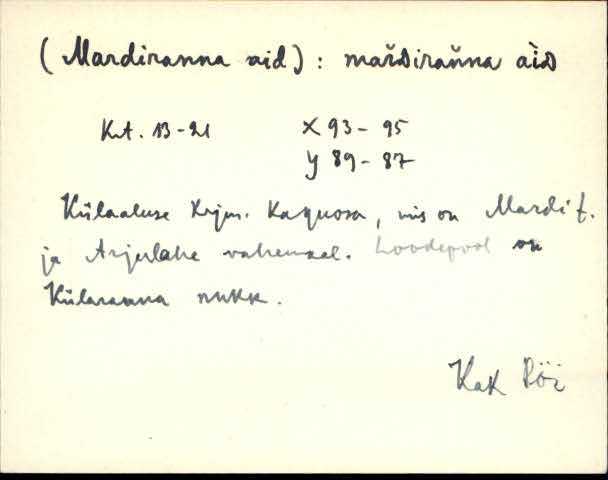 (Mardiranna aid) : mařDirařna àiD
Krt. 13-21 X 93 - 95
Y 89 - 87
Külaaluse krjm. Kaguosa, mis on Mardi t.
ja Arjulahe vahemael. Loodepool on
Külaranna nukk.
Kak Röi